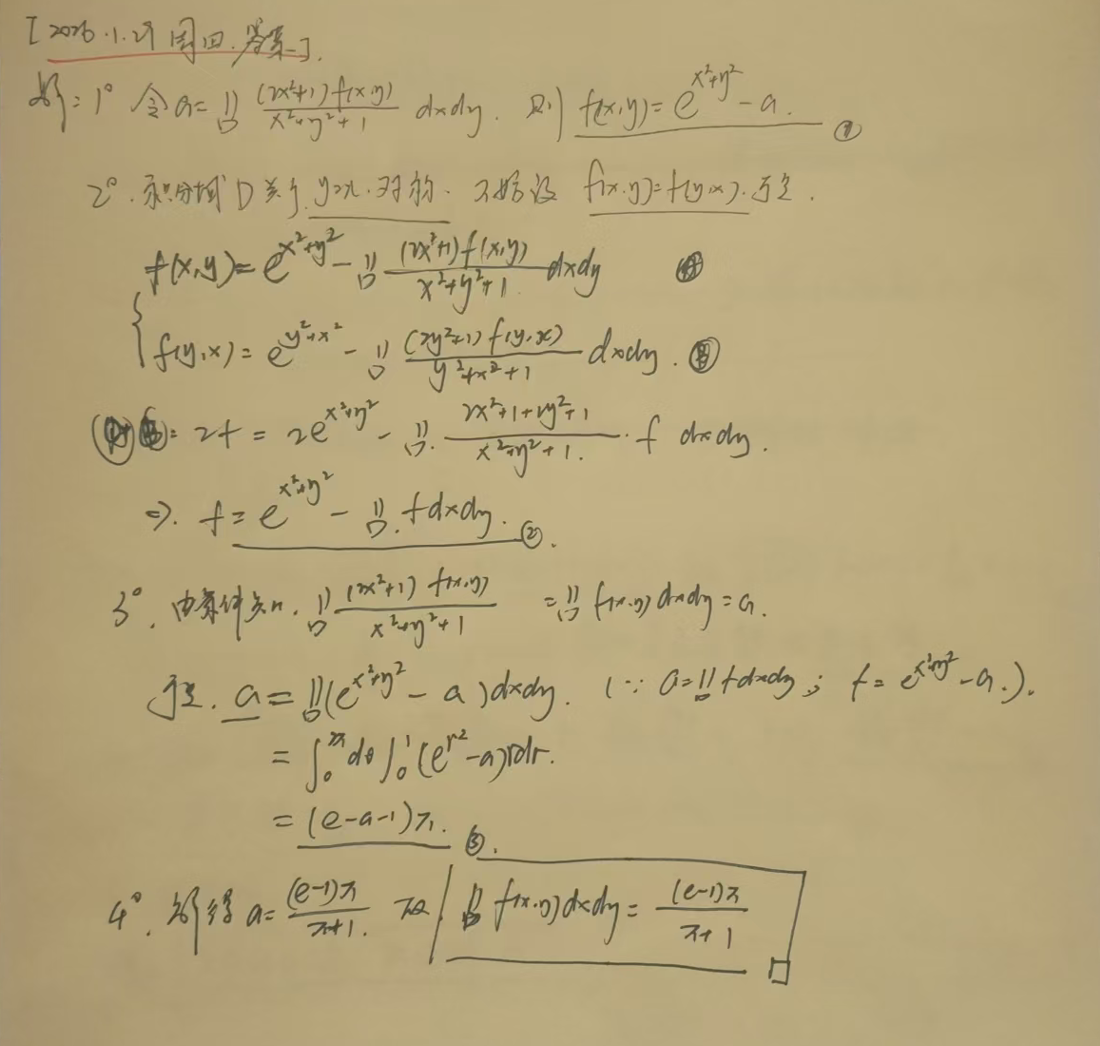 [2026.1.29 周四.答案一].
解:1° 令a=∬_D (2x²+1)f(x,y)/(x²+y²+1) dxdy. 则 f(x,y)=e^{x²+y²}-a. ①
2°. 积分域D关于y=x.对称. 不妨设 f(x.y)=f(y,x).于是.
f(x,y)=e^{x²+y²}-∬_D (2x²+1)f(x,y)/(x²+y²+1) dxdy
f(y,x)=e^{y²+x²}-∬_D (2y²+1)f(y,x)/(y²+x²+1) dxdy.
: 2f=2e^{x²+y²}-∬_D. (2x²+1+2y²+1)/(x²+y²+1.)·f dxdy.
⇒. f=e^{x²+y²}-∬_D. fdxdy. ②.
3°. 由条件知. ∬_D (2x²+1)f(x,y)/(x²+y²+1) =∬_D f(x.y)dxdy=a.
于是. a=∬_D(e^{x²+y²}-a)dxdy. (∵ a=∬_D fdxdy; f=e^{x²+y²}-a.).
=∫_0^{2π}dθ∫_0^1(e^{r²}-a)rdr.
=(e-a-1)π. ③.
4°. 解得a=(e-1)π/(π+1). 故 ∬_D f(x.y)dxdy=(e-1)π/(π+1) □